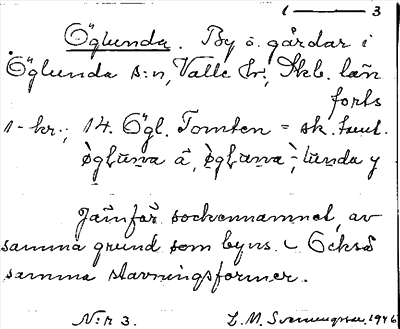 1 — 3
Öglunda. By o. gårdar i
Öglunda s:n, Valle hr, Skb. län
forts
1 - kr.; 14. Ögl. Tomten = sk.
à, lunda y
Jämför sockennamnet, av
samma grund som byns. Också
samma stavningsformer.
N:r 3. L. M. Svenungsson 1946